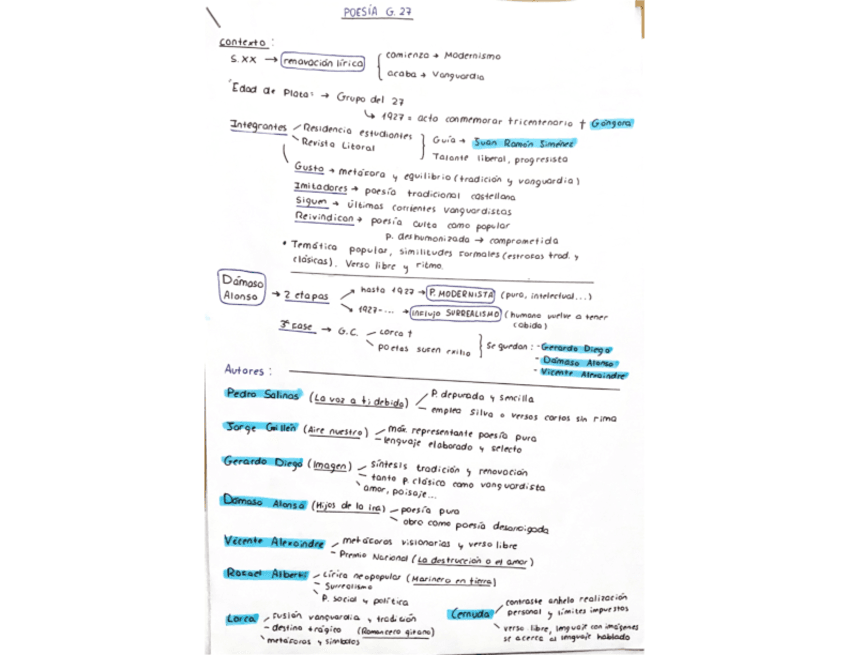 POESÍA G. 27
contexto:
S.XX → renovación lírica
comienza → Modernismo
acaba → Vanguardia
"Edad de Plata" → Grupo del 27
↳ 1927 = acto conmemorar tricentenario † Góngora
Integrantes
Residencia estudiantes
Revista Litoral
Guía → Juan Ramón Jiménez
Talante liberal, progresista
Gusto → metáfora y equilibrio (tradición y vanguardia)
Imitadores → poesía tradicional castellana
Siguen → últimas corrientes vanguardistas
Reivindican → poesía culta como popular
p. deshumanizada → comprometida
• Temática popular, similitudes formales (estrofas trad. y
clásicas). Verso libre y ritmo.
Dámaso
Alonso
→ 2 etapas
hasta 1927 → P. MODERNISTA (pura, intelectual...)
1927-... → influjo SURREALISMO (humano vuelve a tener
cabida)
3ª fase → G.C.
Lorca †
poetas sufren exilio
Se quedan: - Gerardo Diego
- Dámaso Alonso
- Vicente Alexaindre
Autores:
Pedro Salinas (La voz a ti debida)
P. depurada y sencilla
emplea silva o versos cortos sin rima
Jorge Guillén (Aire nuestro)
máx. representante poesía pura
lenguaje elaborado y selecto
Gerardo Diego (Imagen)
síntesis tradición y renovación
tanto p. clásica como vanguardista
amor, paisaje...
Dámaso Alonso (Hijos de la ira)
poesía pura
obra como poesía desarraigada
Vicente Alexaindre
metáforas visionarias y verso libre
Premio Nacional (La destrucción o el amor)
Rafael Alberti
Lírica neopopular (Marinero en tierra)
Surrealismo
P. social y política
Lorca
fusión vanguardia y tradición
destino trágico (Romancero gitano)
metáforas y símbolos
Cernuda
contraste anhelo realización
personal y límites impuestos
verso libre, lenguaje con imágenes
se acerca al lenguaje hablado